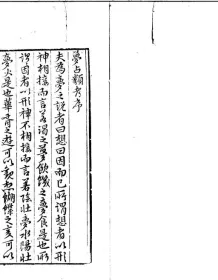 夢占類考序
夫為夢之說者曰想曰因而已所謂想者以形
神相接而言若渴之夢飲饑之夢食是也所
謂因者以形神不相接而言若陰壯夢水陽壯
夢火是也華胥之遊可以蝴蝶之可以